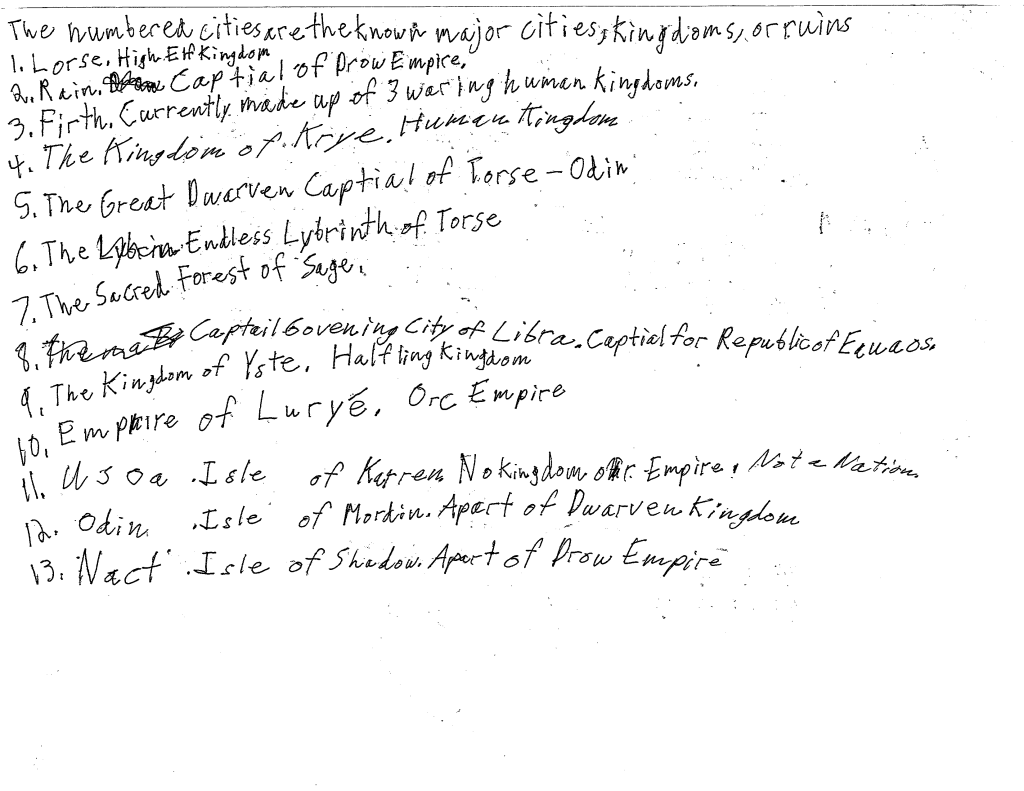 The numbered cities are the known major cities, kingdoms, or ruins
1. Lorse. High Elf Kingdom
2. Rain. Captial of Drow Empire.
3. Firth. Currently made up of 3 waring human kingdoms.
4. The Kingdom of Krye. Human Kingdom
5. The Great Dwarven Captial of Torse - Odin
6. The Endless Lybrinth of Torse
7. The Sacred Forest of Sage.
8. Captail Govening City of Libra. Captial for Republic of
9. The Kingdom of Yste. Halfling Kingdom
10. Empire of Luryé. Orc Empire
11. Usoa . Isle of Karren No kingdom or Empire. Not a Nation
12. Odin . Isle of Mordin. Apart of Dwarven Kingdom
13. Nact . Isle of Shadow. Apart of Drow Empire